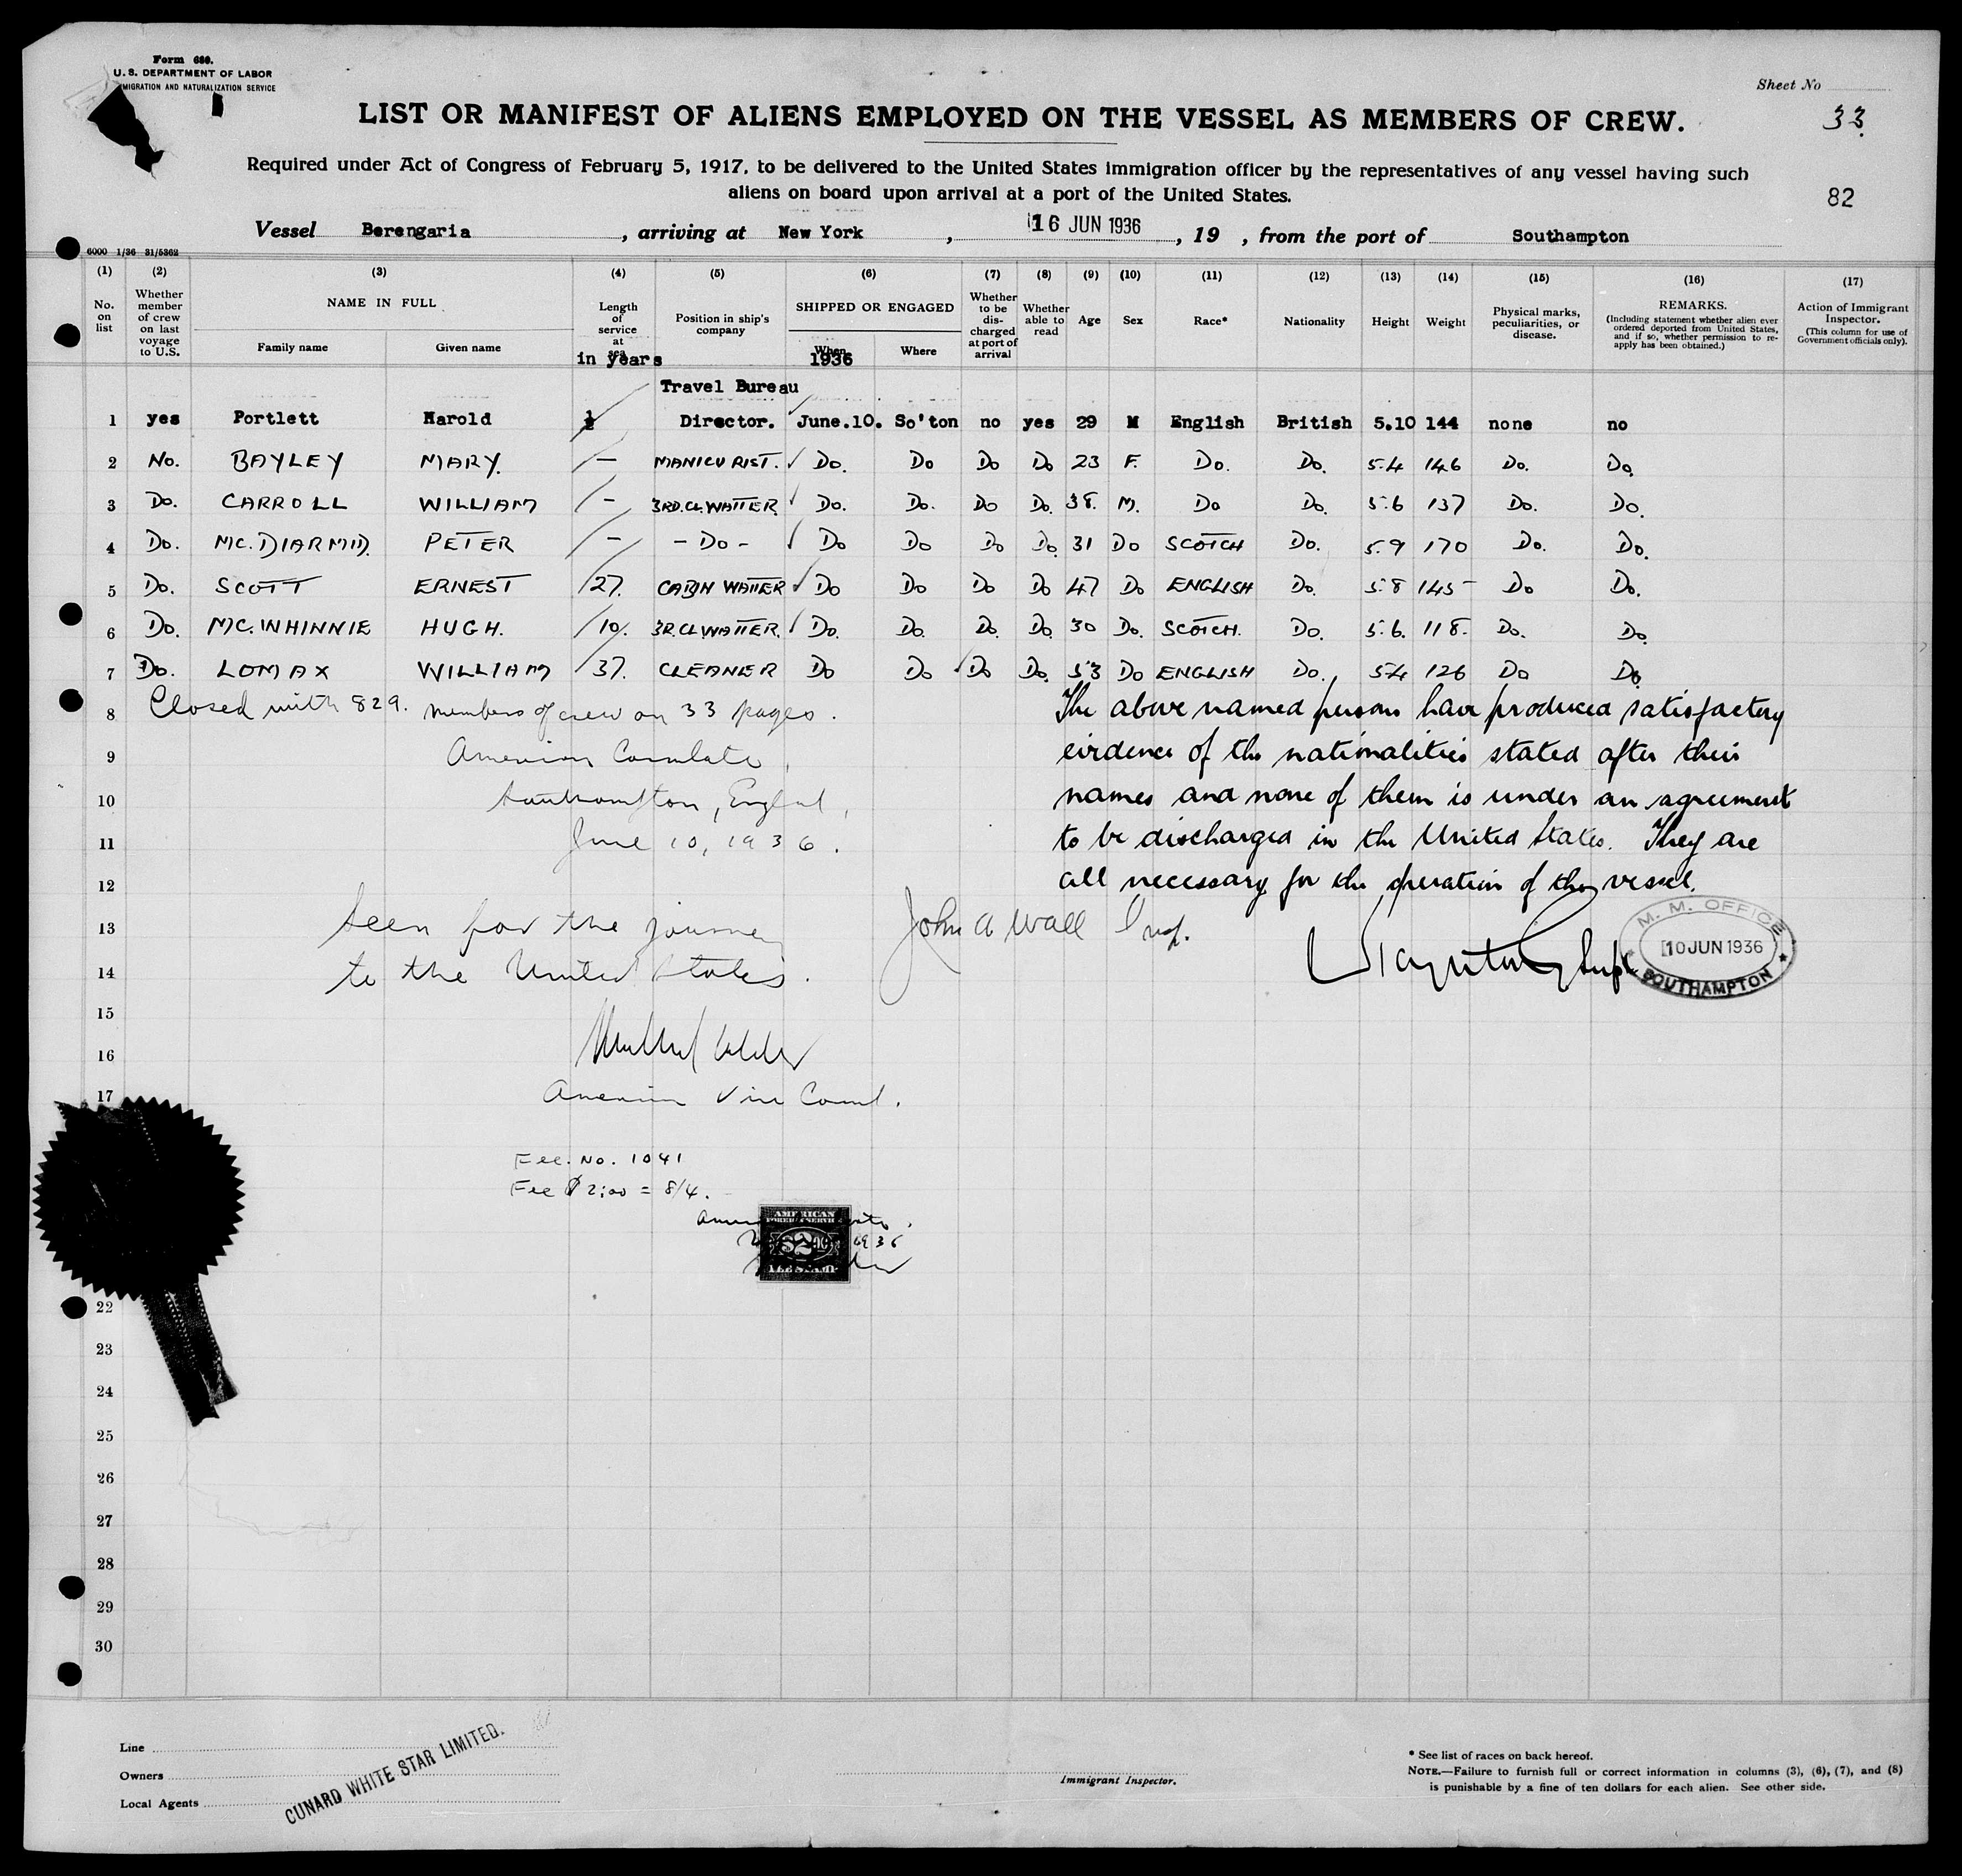 Form 680.
U. S. DEPARTMENT OF LABOR
MIGRATION AND NATURALIZATION SERVICE
Sheet No
LIST OR MANIFEST OF ALIENS EMPLOYED ON THE VESSEL AS MEMBERS OF CREW.
33
Required under Act of Congress of February 5, 1917, to be delivered to the United States immigration officer by the representatives of any vessel having such
aliens on board upon arrival at a port of the United States.
82
Vessel Berengaria , arriving at New York , 16 JUN 1936 , 19 , from the port of Southampton
6000 1/36 31/5362
(1) (2) (3) (4) (5) (6) (7) (8) (9) (10) (11) (12) (13) (14) (15) (16) (17)
No. on list
Whether member of crew on last voyage to U.S.
NAME IN FULL
Family name Given name
Length of service at sea
in years
Position in ship's company
SHIPPED OR ENGAGED
When Where
1936
Whether to be discharged at port of arrival
Whether able to read
Age
Sex
Race*
Nationality
Height
Weight
Physical marks, peculiarities, or disease.
REMARKS.
(Including statement whether alien ever ordered deported from United States, and if so, whether permission to reapply has been obtained.)
Action of Immigrant Inspector.
(This column for use of Government officials only).
Travel Bureau
1 yes Portlett Harold ½ Director. June.10. So'ton no yes 29 M English British 5.10 144 none no
2 No. BAYLEY MARY. - MANICURIST. Do. Do Do Do 23 F. Do. Do. 5.4 146 Do. Do.
3 Do. CARROLL WILLIAM - 3RD.CL.WAITER. Do. Do. Do Do. 38. M. Do Do. 5.6 137 Do. Do.
4 Do. MC.DIARMID. PETER - - Do - Do Do Do Do. 31 Do SCOTCH Do. 5.9 170 Do. Do.
5 Do. SCOTT ERNEST 27. CABIN WAITER Do Do Do Do 47 Do ENGLISH Do. 5.8 145 Do Do.
6 Do. MC.WHINNIE HUGH. 10. 3R.CL.WAITER. Do. Do. Do. Do. 30 Do. SCOTCH. Do. 5.6. 118. Do. Do.
7 Do. LOMAX WILLIAM 37. CLEANER Do Do Do Do. 53 Do ENGLISH Do. 5.4 126 Do Do.
8 Closed with 829. members of crew on 33 pages.
The above named persons have produced satisfactory
9 American Consulate,
evidence of the nationalities stated after their
10 Southampton, England,
names and none of them is under an agreement
11 June 10, 1936.
to be discharged in the United States. They are
12
all necessary for the operation of the vessel.
13 Seen for the journey
John A Wall
Supt
M. M. OFFICE
10 JUN 1936
SOUTHAMPTON
14 to the United States.
15
16
17 American Vice Consul.
Fee. No. 1041
Fee $2.00 = 8/4.
AMERICAN
FOREIGN SERVICE
$2.00
FEE STAMP
1936
22
23
24
25
26
27
28
29
30
Line
Owners
Local Agents
CUNARD WHITE STAR LIMITED.
Immigrant Inspector.
* See list of races on back hereof.
NOTE.—Failure to furnish full or correct information in columns (3), (6), (7), and (8)
is punishable by a fine of ten dollars for each alien. See other side.